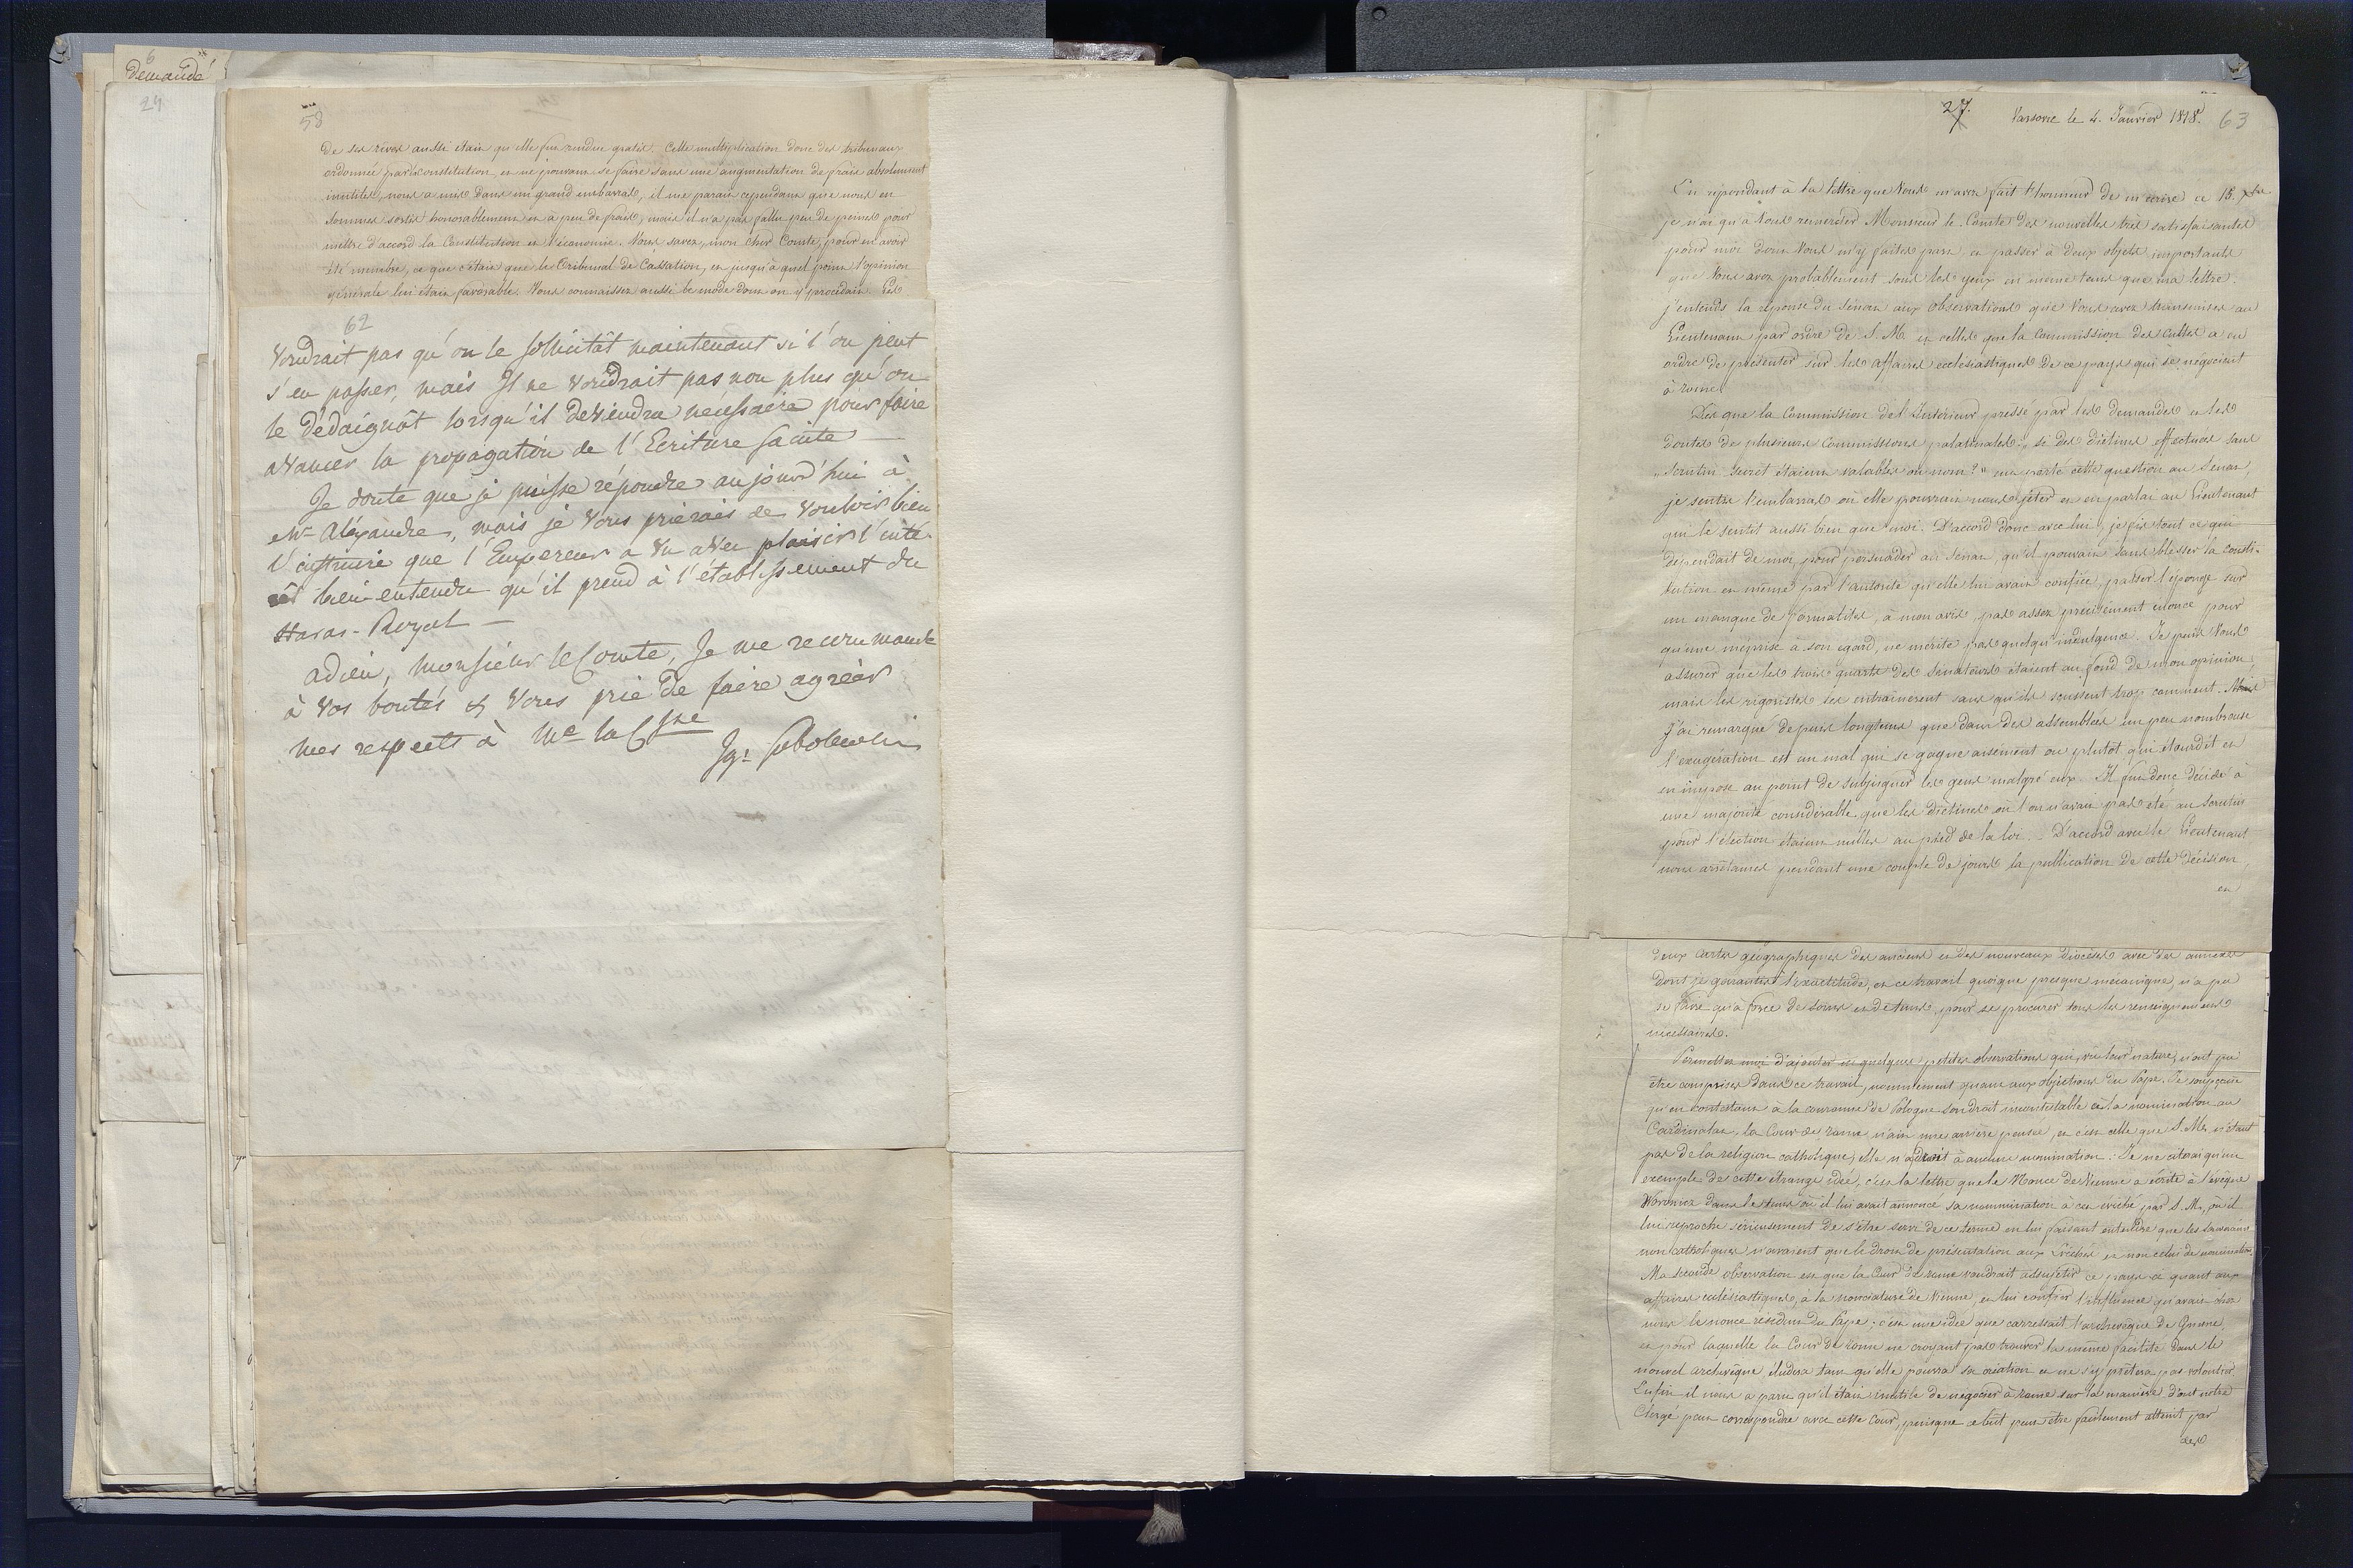 6
demandé
29
58
de ses rêves aussi était qu'elle fut rendue gratis. Cette multiplication donc des tribunaux
ordonnée par la constitution, en ne pouvant se faire sans une augmentation de frais absolument
inutiles, nous a mis dans un grand embarras, il me parait cependant que nous en
sommes sortis honorablement et à peu de frais, mais il n'a pas fallu peu de peines pour
mettre d'accord la Constitution et l'économie. Vous savez, mon cher Comte, pour en avoir
été membre, ce que c'était que le Tribunal de Cassation, et jusqu'à quel point l'opinion
générale lui était favorable. Vous connaissez aussi le mode dont on y procédait. Les
62
voudrait pas qu'on le sollicitât maintenant si l'on peut
s'en passer, mais Il ne voudrait pas non plus qu'on
le dédaignât lorsqu'il deviendra nécessaire pour faire
avancer la propagation de l'Ecriture sainte —
Je doute que je puisse répondre aujourd'hui à
Mr Aléxandre, mais je vous prierais de vouloir bien
l'instruire que l'Empereur a vu avec plaisir l'inté-
rêt bien entendu qu'il prend à l'établissement du
Haras-Royal —
adieu, Monsieur le Comte, Je me recommande
à vos bontés & vous prie de faire agréér
mes respects à Me la Csse
Ig: Sobolewski
27.
Varsovie le 4. Janvier 1818.
63
En répondant à la lettre que Vous m'avez fait l'honneur de m'écrire ce 15. Xbre
je n'ai qu'à Vous remercier Monsieur le Comte des nouvelles très satisfaisantes
pour moi dont Vous m'y faites part, et passer à deux objets importants
que Vous avez probablement sous les yeux en même tems que ma lettre.
j'entends la réponse du Sénat aux observations que Vous avez transmises au
Lieutenant par ordre de S. M. et celles que la Commission des Cultes a eu
ordre de présenter sur les affaires ecclésiastiques de ce pays qui se négocient
à Rome.
Dès que la Commission de l'Intérieur pressé par les demandes et les
doutes de plusieurs Commissions palatinales: „si des diétines effectuées sans
„scrutin secret étaient valables ou non?" eut porté cette question au Sénat,
je sentis l'embarras où elle pourrait nous jeter et en parlai au Lieutenant
qui le sentit aussi bien que moi. D'accord donc avec lui, je fis tout ce qui
dépendait de moi, pour persuader au Sénat, qu'il pouvait sans blesser la consti-
tution et même par l'autorité qu'elle lui avait confiée, passer l'éponge sur
un manque de formalités, à mon avis, pas assez précisément énoncé pour
qu'une méprise à son égard, ne mérite pas quelqu'indulgence. Je puis Vous
assurer que les trois quarts des Sénateurs étaient au fond de mon opinion,
mais les rigoristes les entrainèrent sans qu'ils sçussent trop comment. Mais
j'ai remarqué depuis longtems que dans des assemblées un peu nombreuse
l'exagération est un mal qui se gagne aisément ou plutôt qui étourdit et
en impose au point de subjuguer les gens malgré eux. Il fut donc décidé à
une majorité considérable que les diétines où l'on n'avait pas été au scrutin
pour l'élection étaient nulles au pied de la loi. D'accord avec le Lieutenant
nous arrêtames pendant une couple de jours la publication de cette décision,
en
deux cartes géographiques des anciens et des nouveaux Diocèses avec des annexes
dont je garantis l'exactitude, et ce travail quoique presque mécanique, n'a pu
se faire qu'à force de soins et de tems, pour se procurer tous les renseignemens
nécessaires.
Permettez moi d'ajouter ici quelques petites observations qui, vu leur nature, n'ont pu
être comprises dans ce travail, nommément quant aux objections du Pape. Je soupçonne
qu'en contestant à la couronne de Pologne son droit incontestable à la nomination au
Cardinalat, la Cour de Rome n'ait une arrière pensée, et c'est celle que S. M. n'étant
pas de la religion catholique, elle n'a droit à aucune nomination. Je ne citerai qu'un
exemple de cette étrange idée, c'est la lettre que le Nonce de Vienne a écrite à l'évêque
Woronicz dans le tems où il lui avait annoncé sa nomination à cet évêché par S. M., où il
lui reproche sérieusement de s'être servi de ce terme en lui faisant entendre que les souverains
non catholiques n'avaient que le droit de présentation aux Evêchés et non celui de nomination.
Ma seconde observation est que la Cour de Rome voudrait assujetir ce pays-ci quant aux
affaires ecclésiastiques, à la nonciature de Vienne, et lui confier l'influence qu'avait chez
nous le nonce résident du Pape; c'est une idée que carressait l'archevêque de Gnesne,
et pour laquelle la Cour de Rome ne croyant pas trouver la même facilité dans le
nouvel archevêque, éludera tant qu'elle pourra sa création et ne s'y prêtera pas volontiers.
Enfin il nous a paru qu'il était inutile de négocier à Rome sur la manière dont notre
Clergé peut correspondre avec cette Cour, puisque ce but peut être facilement atteint par
des